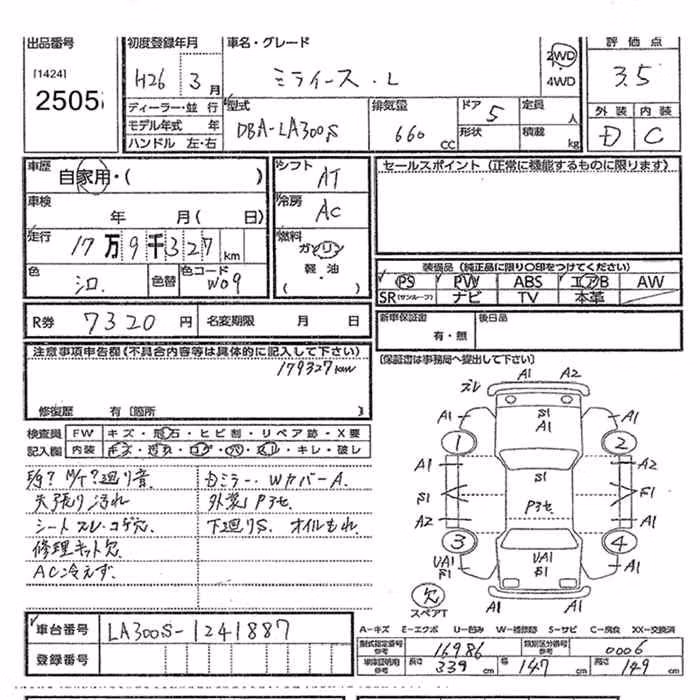 出品番号 初度登録年月 車名・グレード 評価点
[1424] 2505 H26年 3月 ミライース・L 2WD 4WD 3.5
ディーラー・並行 型式 排気量 ドア 5 定員 人 外装 内装
モデル年式 年 DBA-LA300S 660 CC 形状 積載 kg D C
ハンドル 左・右
車歴 自家用・( ) シフト AT セールスポイント (正常に機能するものに限ります)
車検 年 月( 日) 冷房 AC
走行 17万9千327km 燃料 ガソリン 軽・油 ( )
色 シロ. 色替 色コード W09
装備品 (純正品に限り○印をつけてください)
PS PW ABS エアB AW
SR(サンルーフ) ナビ TV 本革
R券 7320円 名変期限 月 日 新車保証書 有・無 後日品
[保証書は事務局へ提出して下さい]
注意事項申告欄(不具合内容等は具体的に記入して下さい)
179327km
修復歴 有 [箇所 ]
検査員 FW キズ・飛石・ヒビ割・リペア跡・X要
記入欄 内装 キズ・汚れ・コゲ・穴・スレ・キレ・破レ
廻り音. ミラー. WカバーA.
天張り汚れ 外装 P3セ
シート スレ・コゲ穴. 下廻りS. オイルもれ.
修理キット欠
AC冷えず.
A1 A2
ズレ
A1 S1 A1 A1
1 2
A1 S1 A2
S1 P3セ F1
A2 A1
3 4
UA1 S1 UA1 S1 A1
欠 スペアT
A1 A1
車台番号 LA300S-1241887
登録番号
A-キズ E-エクボ U-凹み W-補修跡 S-サビ C-腐食 XX-交換済
型式指定番号 参考 16986 類別区分番号 参考 0006
車庫証明用 参考 長さ 339 cm 幅 147 cm 高さ 149 cm